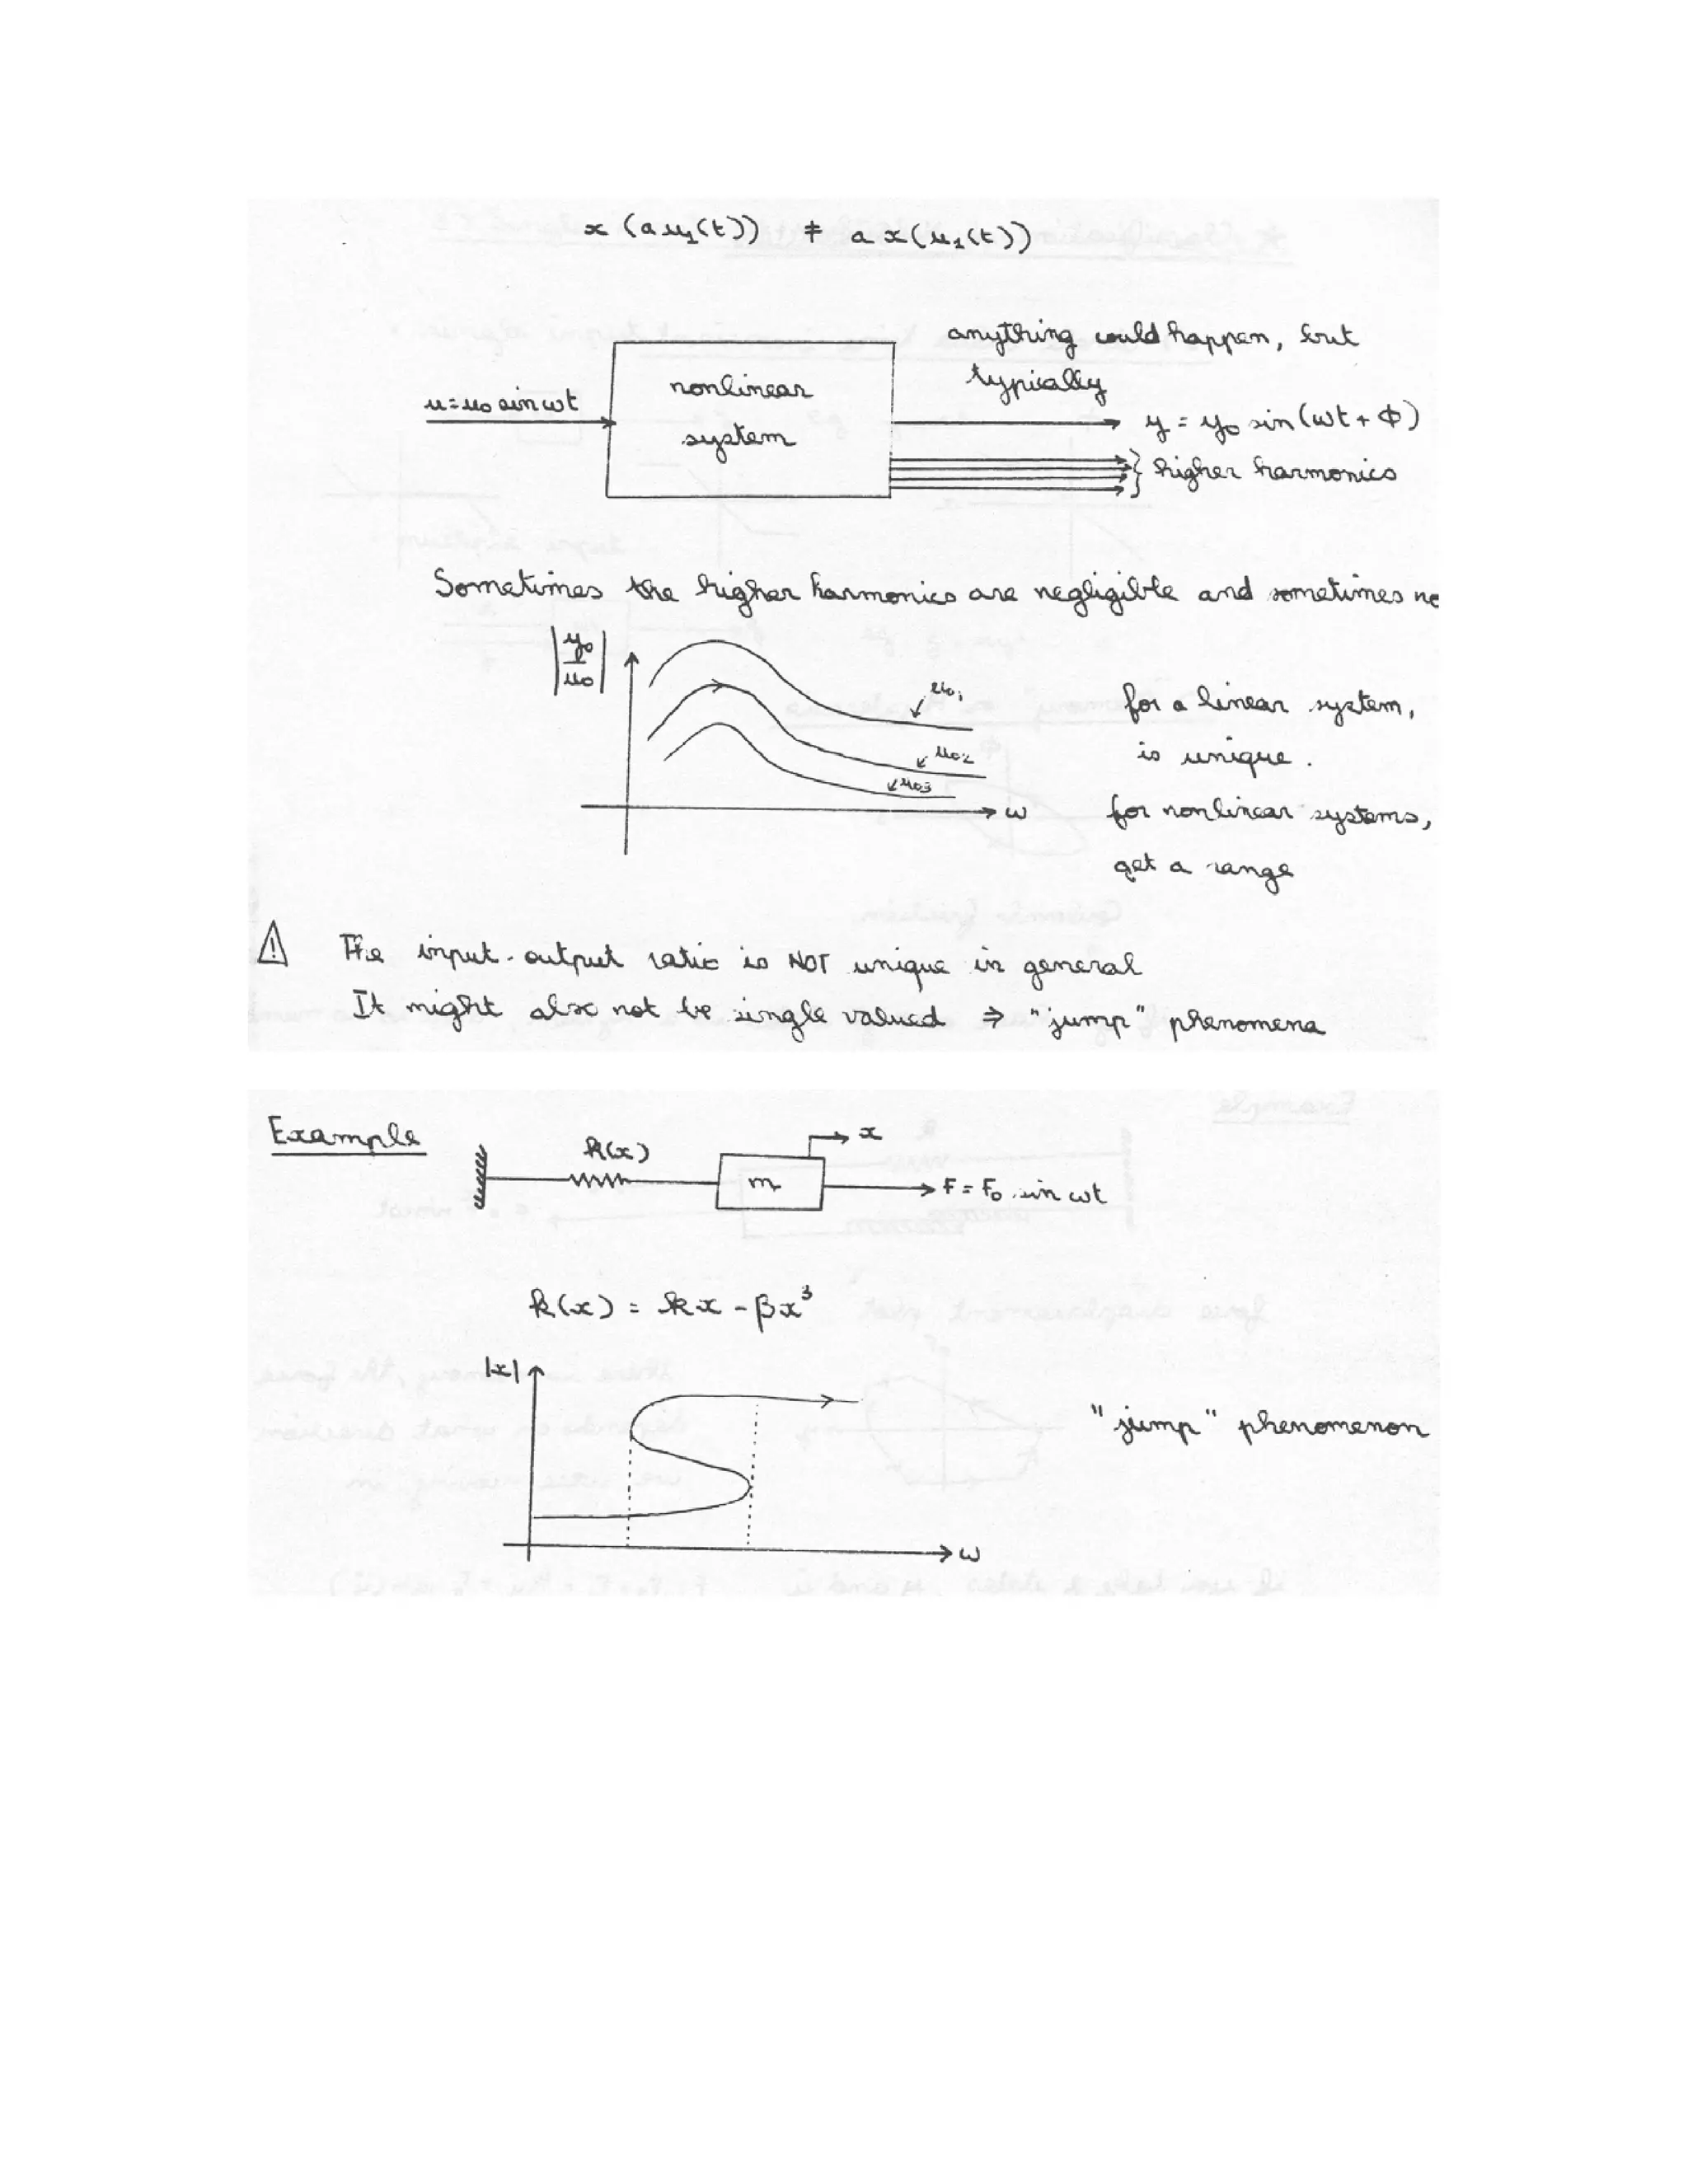 x (a u₁(t)) ≠ a x(u₁(t))
anything could happen, but
typically
u = u₀ sin ωt
nonlinear
system
y = y₀ sin(ωt + Φ)
} higher harmonics
Sometimes the higher harmonics are negligible and sometimes
|y₀/u₀|
u₀₁
u₀₂
u₀₃
ω
for a linear system,
is unique.
for nonlinear systems,
get a range
⚠ The input-output ratio is NOT unique in general
It might also not be single valued ⇒ "jump" phenomena
Example
k(x)
x
m
F = F₀ sin ωt
k(x) = kx - βx³
|x|
ω
"jump" phenomenon